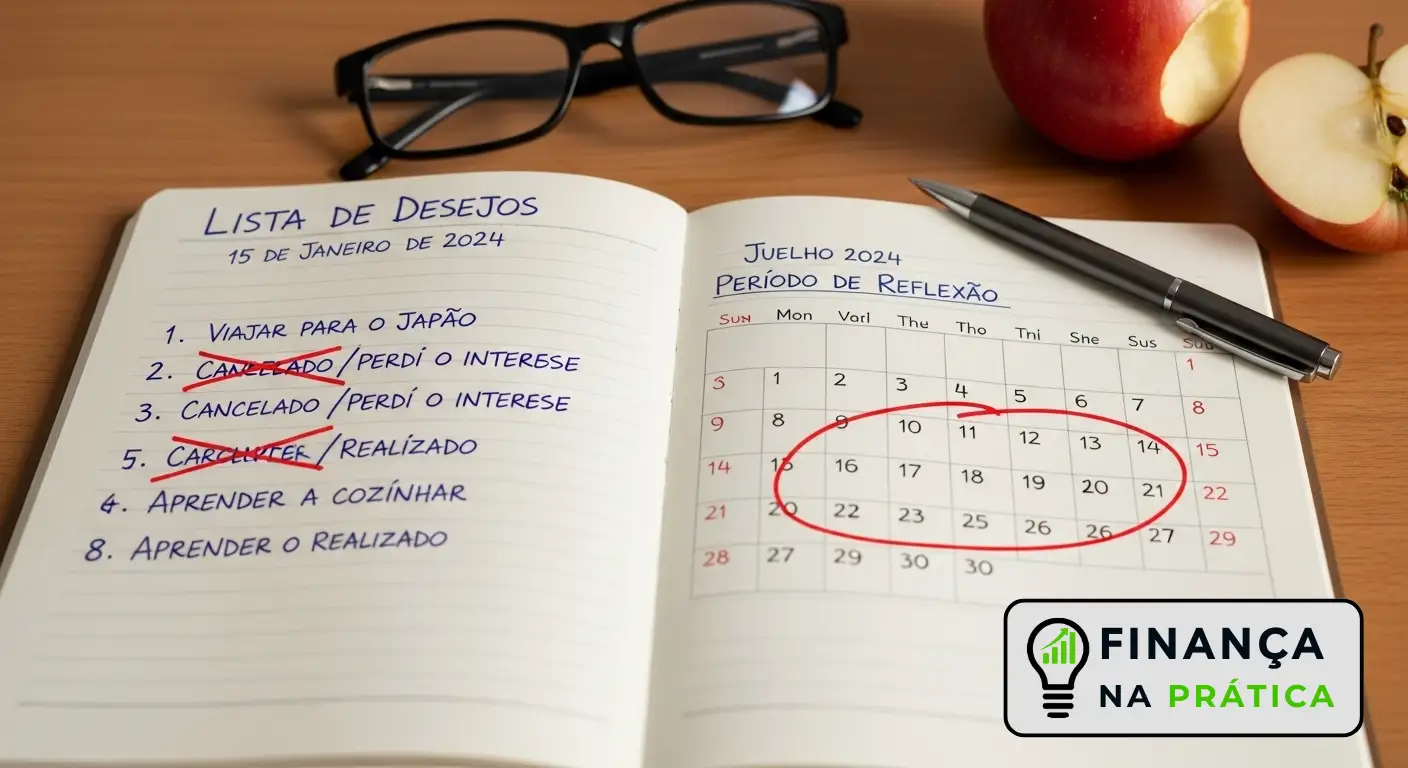 LISTA DE DESEJOS
15 DE JANEIRO DE 2024
1. VIAJAR PARA O JAPÃO
2. CANCELADO /PERDÍ O INTERESE
3. CANCELADO /PERDÍ O INTERESE
5. /REALIZADO
4. APRENDER A COZÍNHAR
8. APRENDER O REALIZADO
JUELHO 2024
PERÍODO DE REFLEXÃO
Sun Mon Varl The Tho Tni She Sus
1
S 1 2 3 4 5 6 7 8
9 8 9 10 11 12 13 14 15
14 15 16 17 18 19 20 21 22
21 20 22 23 25 26 26 27 29
28 27 29 30 30
FINANÇA
NA PRÁTICA